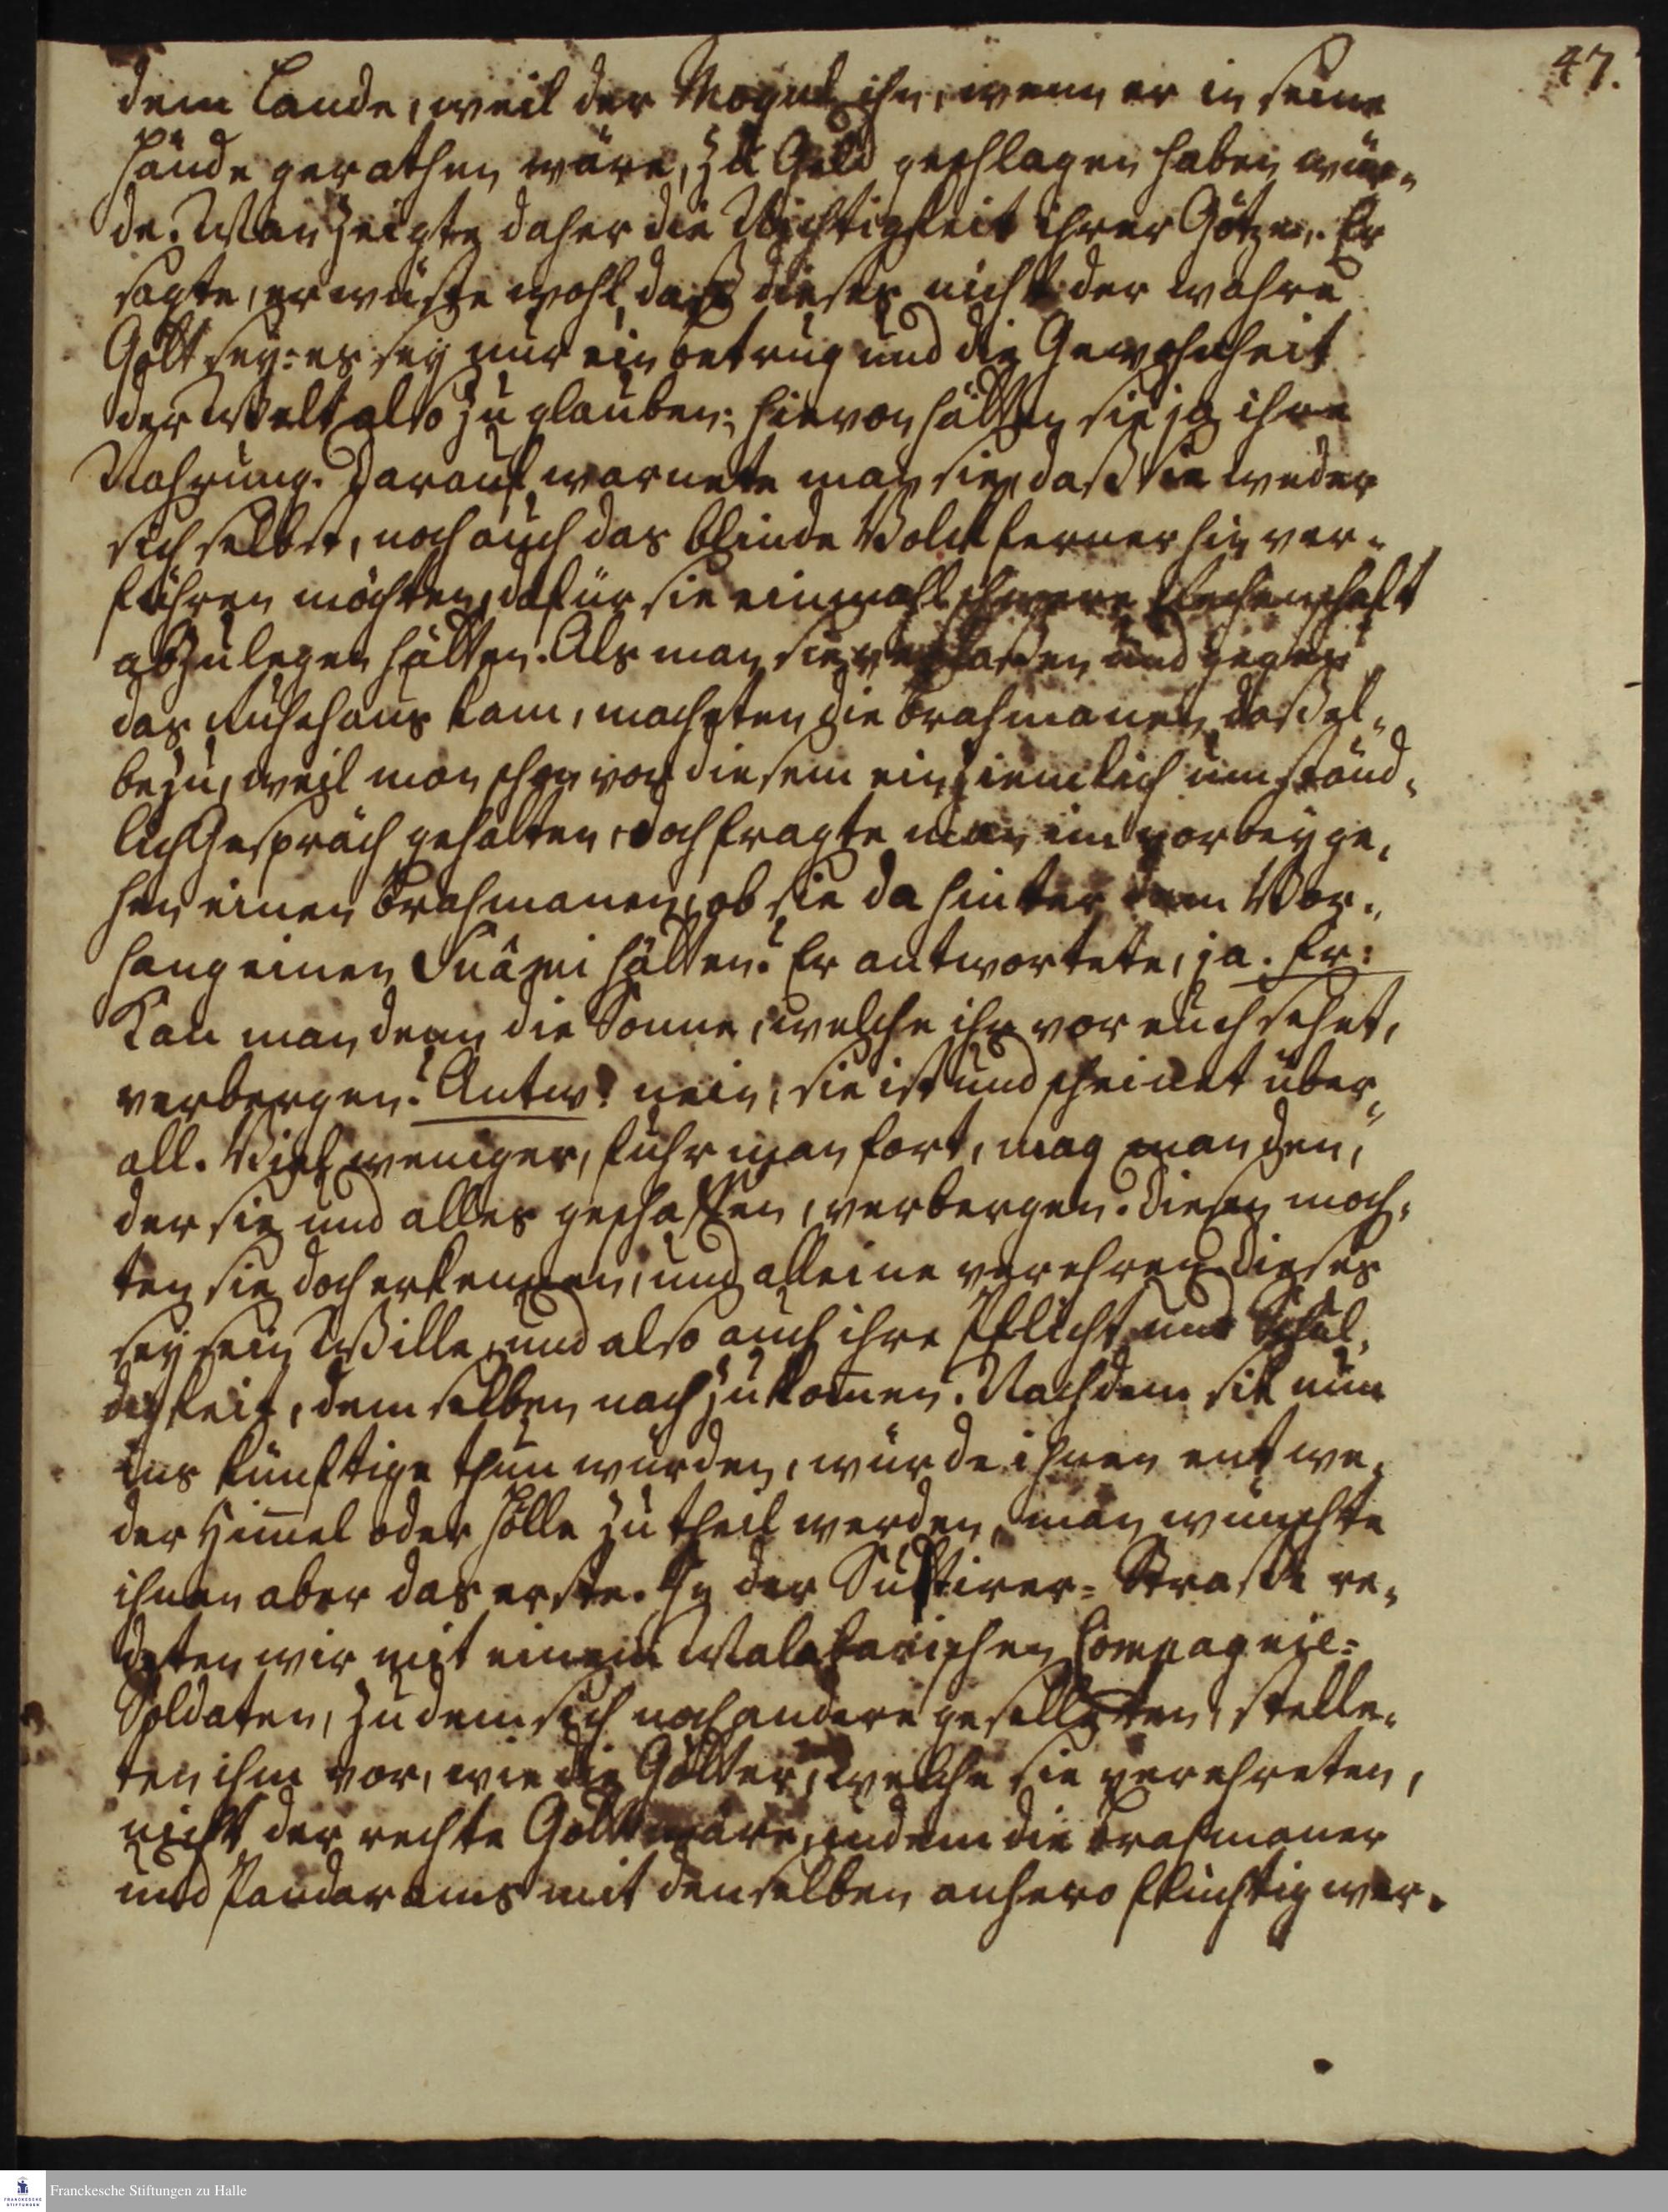 47.
dem Lande, weil der Mogul ihn, wenn er in seine
Hände gerathen wäre, zu Geld geschlagen haben wür-
de. Man zeigte daher die Nichtigkeit ihrer Götzen. Er
sagte, er wüste wohl, daß dieses nicht der wahre
Gott sey: es sey nur ein betrug und die Gewohnheit
der Welt also zu glauben; hievon hätten sie ja ihre
Nahrung. Darauf warnete man sie, daß sie weder
sich selbst, noch auch das blinde Volck ferner hin ver-
führen möchten, dafür sie einmahl schwere Rechenschaft
abzulegen hätten. Als man sie verlaßen und gegen
das Ruhehaus kam, machten die Brahmanen daßel-
be zu, weil man schon von diesem ein ziemlich umständ-
lich Gespräch gehalten, doch fragte man im vorbeyge-
hen einen Brahmanen, ob sie da hinter dem Vor-
hang einen Suâmi hätten? Er antwortete, ja. Er:
Kan man denn die Sonne, welche ihr vor euch sehet,
verbergen? Antw: nein, sie ist und scheinet über-
all. Viel weniger, fuhr man fort, mag man den,
der sie und alles geschaffen, verbergen. Diesen möch-
ten sie doch erkennen, und alleine verehren. Dieses
sey sein Wille, und also auch ihre Pflicht und Schul-
digkeit, demselben nachzukomen. Nachdem sie nun
ins künftige thun würden, würde ihnen entwe-
der Himel oder Hölle zu theil werden, man wünschte
ihnen aber das erste. In der Strasse re-
deten wir mit einem Malabarischen Compagnie-
Soldaten, zu dem sich noch andere geselleten, stelle-
ten ihm vor, wie die Götter, welche sie verehreten,
nicht der rechte Gott wäre, indem die Brahmaner
und Pandarams mit denselben anhero flüchtig wer-
Franckesche Stiftungen zu Halle
FRANCKESCHE
STIFTUNGEN